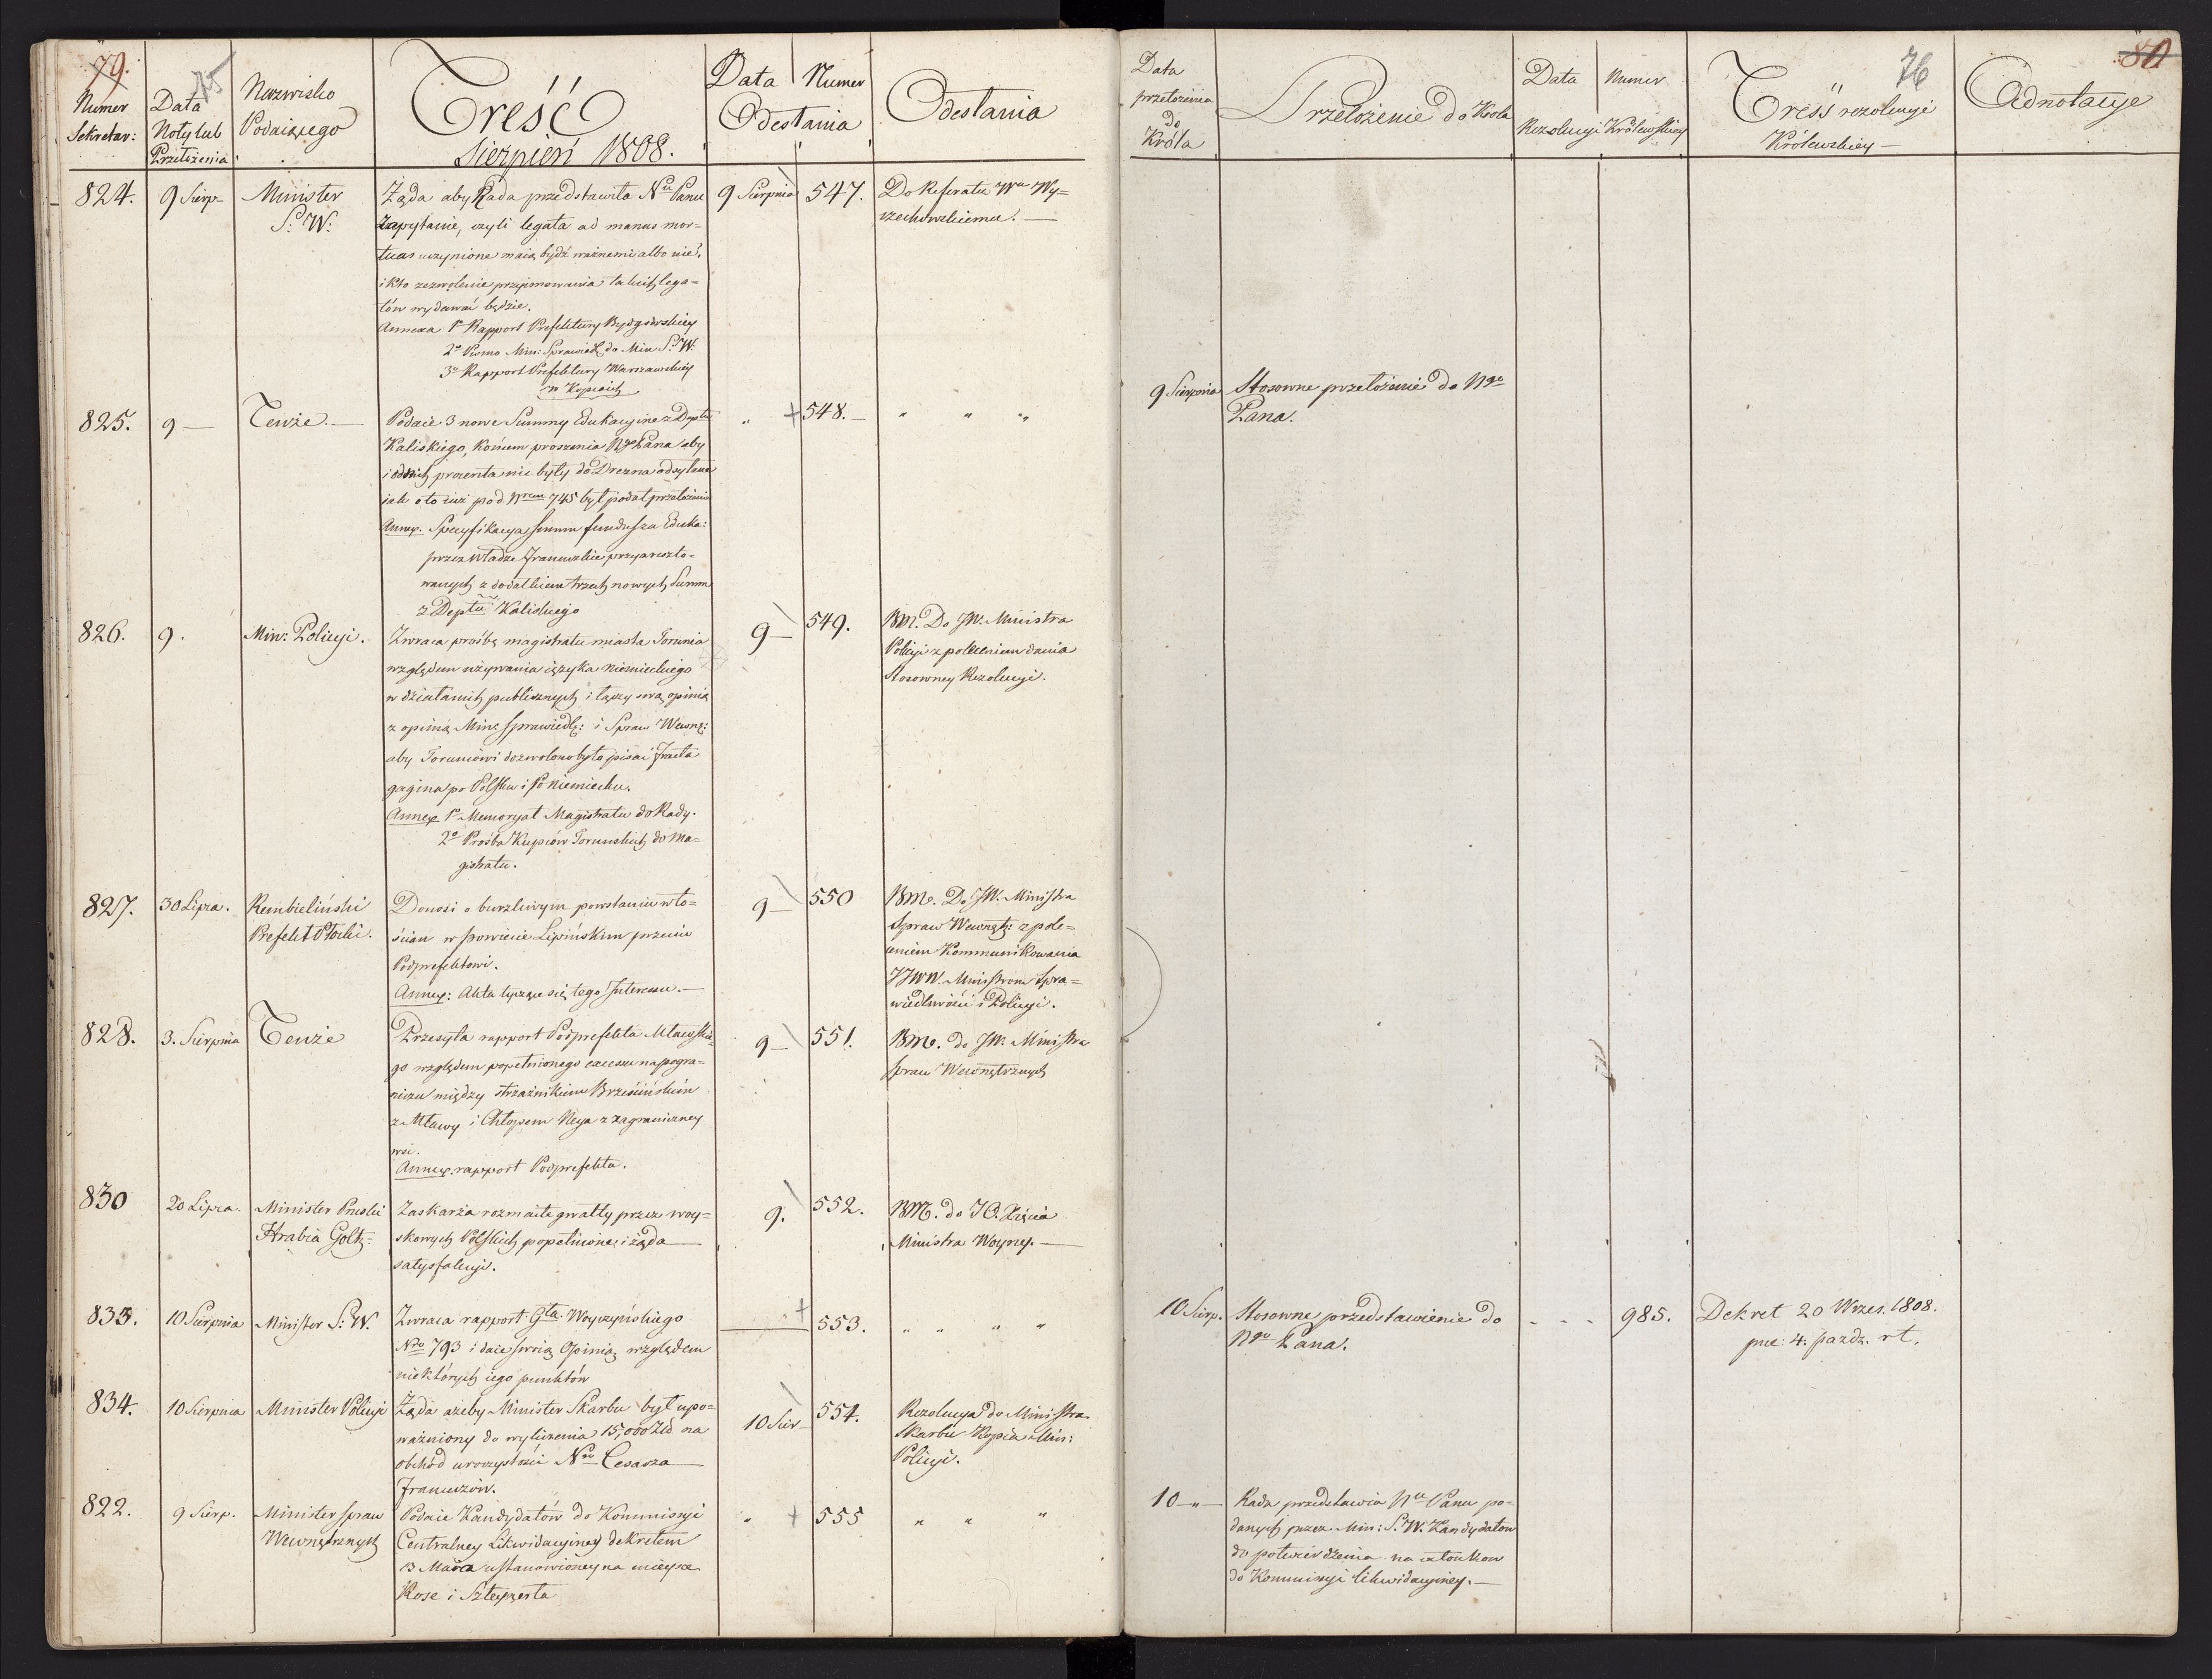 79.
75
Numer
Sekretar:
Data
Noty lub
Przełożenia
Nazwisko
Podaiącego
Treść
Sierpień 1808.
Data
Numer
Odesłania
Odesłania
824.
9 Sierp-
Minister
S: W:
Żąda aby Rada przedstawiła Nu Panu
Zapytanie, czyli legata ad manus mor=
tuas uczynione maią bydź ważnemi albo nie?
i kto zezwolenie przyimowania takich lega=
tów wydawać będzie.
Annexa 1º Rapport Prefektury Bydgowskiey
2º Pismo Min: Sprawiedl: do Min S: W:
3º Rapport Prefektury Warszawskiey
w Kopiach
9 Sierpnia
547.
Do Referatu Wu Wy=
czechowskiemu. —
825.
9 —
Tenże. —
Podaie 3 nowe Summy Edukacyine z Deptu
Kaliskiego, Końcem proszenia Ngo Pana aby
i od nich procenta nie były do Drezna odsyłane
iak o to iuż pod Nrem 745 był podał przełożenie
Annex. Specyfikacya summ funduszu Eduka:
przez Władze Francuzkie przyareszto=
wanych z dodatkiem trzech nowych Summ
z Deptu Kaliskiego
"
+ 548. —
" " "
826.
9.
Min: Policyi.
Zwraca prośbę magistratu miasta Torunia
względem używania ięzyka niemieckiego
w działaniach publicznych i łączy swą opinię
z opinią Min: Sprawiedl: i Spraw Wewnę:
aby Toruniowi dozwolono było pisać fracta
pagina po Polsku i po niemiecku.
Annex 1º Memoryał Magistratu do Rady.
2º Prośba Kupców Toruńskich do Ma=
gistratu.
9 —
549.
BM. Do JW. Ministra
Policyi z poleceniem dania
stosowney Rezolucyi.
827.
30 Lipca.
Rembieliński
Prefekt Płocki.
Donosi o burzliwym powstaniu wło=
ścian w powiecie Lipińskim przeciw
Podprefektowi.
Annex: Akta tyczące się tego Interessu. —
9 —
550
BM. Do JW. Ministra
Spraw Wewnętz: z pole=
ceniem Kommunikowania
JJWW. Ministrom Spra=
wiedliwości i Policyi.
828.
3. Sierpnia
Tenże
Przesyła rapport Podprefekta Mławskie=
go względem popełnionego excessu na pogra=
niczu między strażnikiem Brzezińskim
z Mławy i Chłopem Neya z zagraniczney
wsi.
Annex: rapport Podprefekta.
9 —
551.
BM. do JW. Ministra
spraw Wewnętrznych
830
20 Lipca.
Minister Pruski
Hrabia Goltz.
Zaskarża rozmaite gwałty przez woy=
skowych Polskich popełnione, i żąda —
satysfakcyi.
9.
552.
BM. do JO. Xięcia
Ministra Woyny. —
833.
10 Sierpnia
Minister S: W.
Zwraca rapport Gła Woyczyńskiego
Nro 793 i daie swoią Opinią względem
niektórych iego punktów
+
553.
" " " "
834.
10 Sierpnia
Minister Policyi
Żąda ażeby Minister Skarbu był upo=
ważniony do wyliczenia 15,000 Złł na
obchód uroczystości Ngo Cesarza —
Francuzów.
10 Sier —
554.
Rezolucya do Ministra
Skarbu Kopia Min:
Policyi.
822.
9 Sierp.
Minister spraw
Wewnętrznych
Podaie Kandydatów do Kommissyi
Centralney Likwidacyiney dekretem
13 Marca ustanowioney na mieysce
Rose i
"
+ 555
" " "
76
80
Data
przełożenia
do
Króla
Przełożenie do Króla
Data
Numer
Rezolucyi Królewskiey
Treść rezolucyi
Królewskiey —
Adnotacye
9 Sierpnia
Stosowne przełożenie do Ngo
Pana.
10 Sierp.
Stosowne przedstawienie do
Ngo Pana.
- - -
985.
Dekret 20 Wrzes. 1808.
pre: 4. pazdz. rt.
10 — " —
Rada przedstawia Nu Panu po=
danych przez Min: S. W. Kandydatow
do potwierdzenia na członkow
do Kommissyi likwidacyiney. —